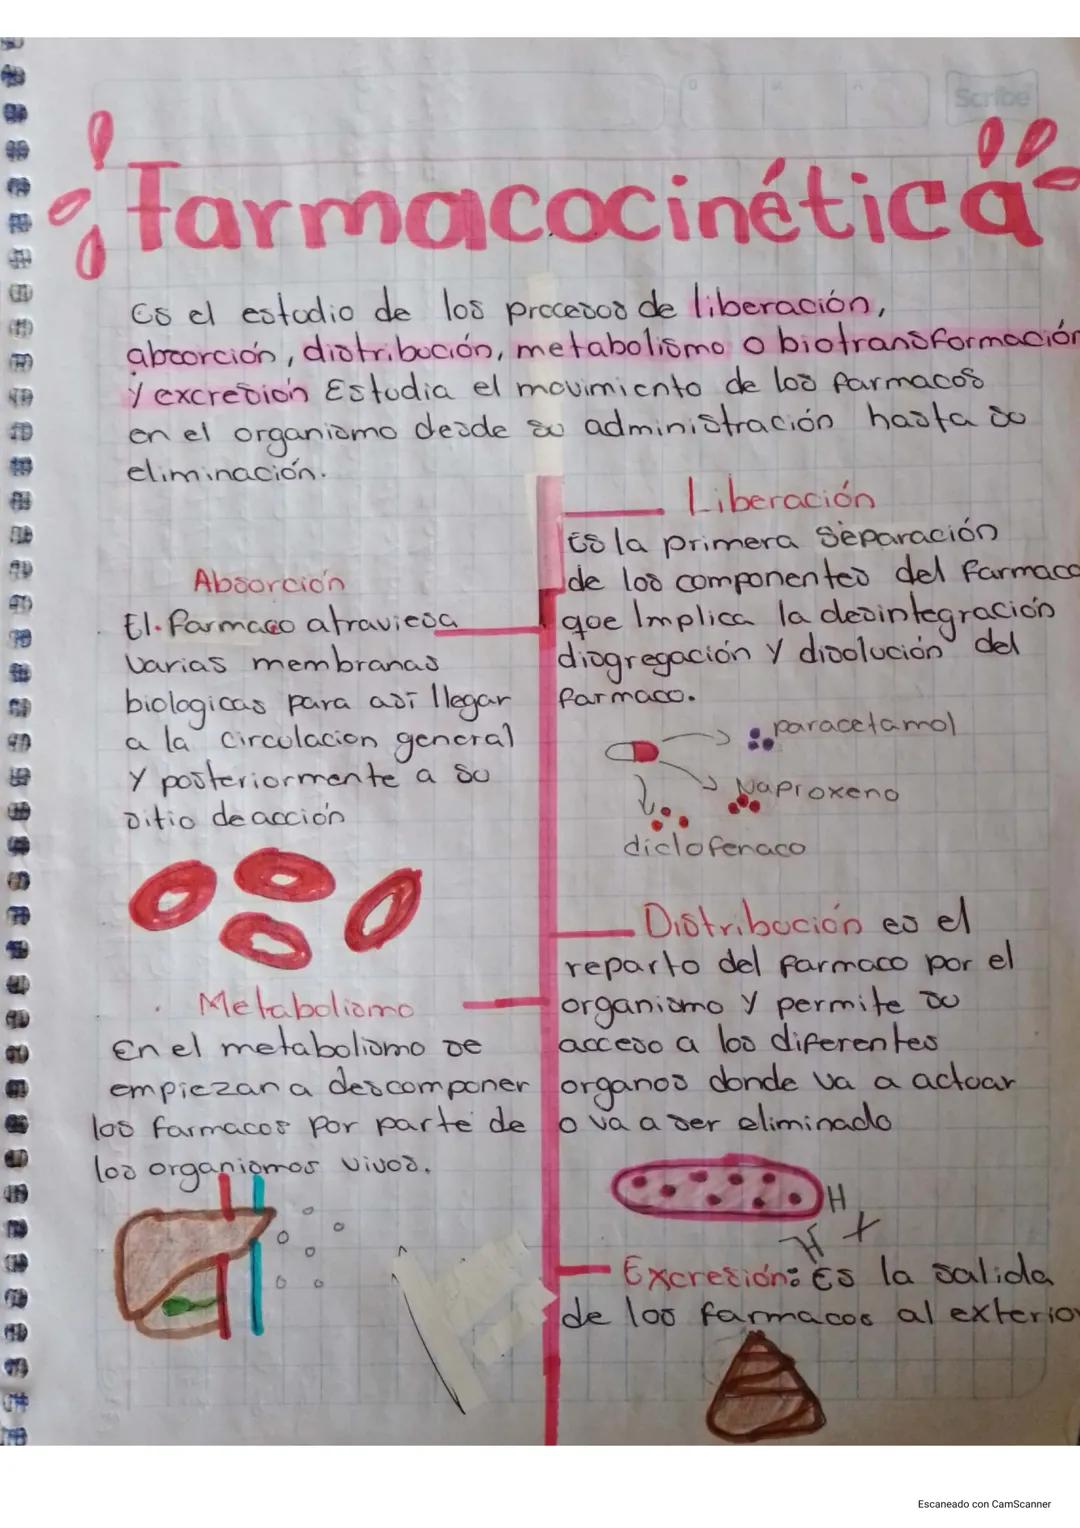 Scribe
Farmacocinética
Es el estudio de los procesos de liberación,
absorción, distribución, metabolismo o biotransformación
y excresión Estudia el movimiento de los farmacos
en el organismo desde su administración hasta su
eliminación.
Liberación
Es la primera separación
de los componentes del farmaco
que Implica la desintegración
disgregación y disolución del
farmaco.
paracetamol
Naproxeno
diclofenaco
Absorción
El farmaco atraviesa
varias membranas
biologicas para así llegar
a la circulacion general
y posteriormente a su
sitio de acción
Distribución es el
reparto del farmaco por el
organismo y permite su
acceso a los diferentes
organos donde va a actuar
o va a ser eliminado
Metabolismo
En el metabolismo se
empiezan a descomponer
los farmacos por parte de
los organismos vivos.
Excresión: Es la salida
de los farmacos al exterior
Escaneado con CamScanner